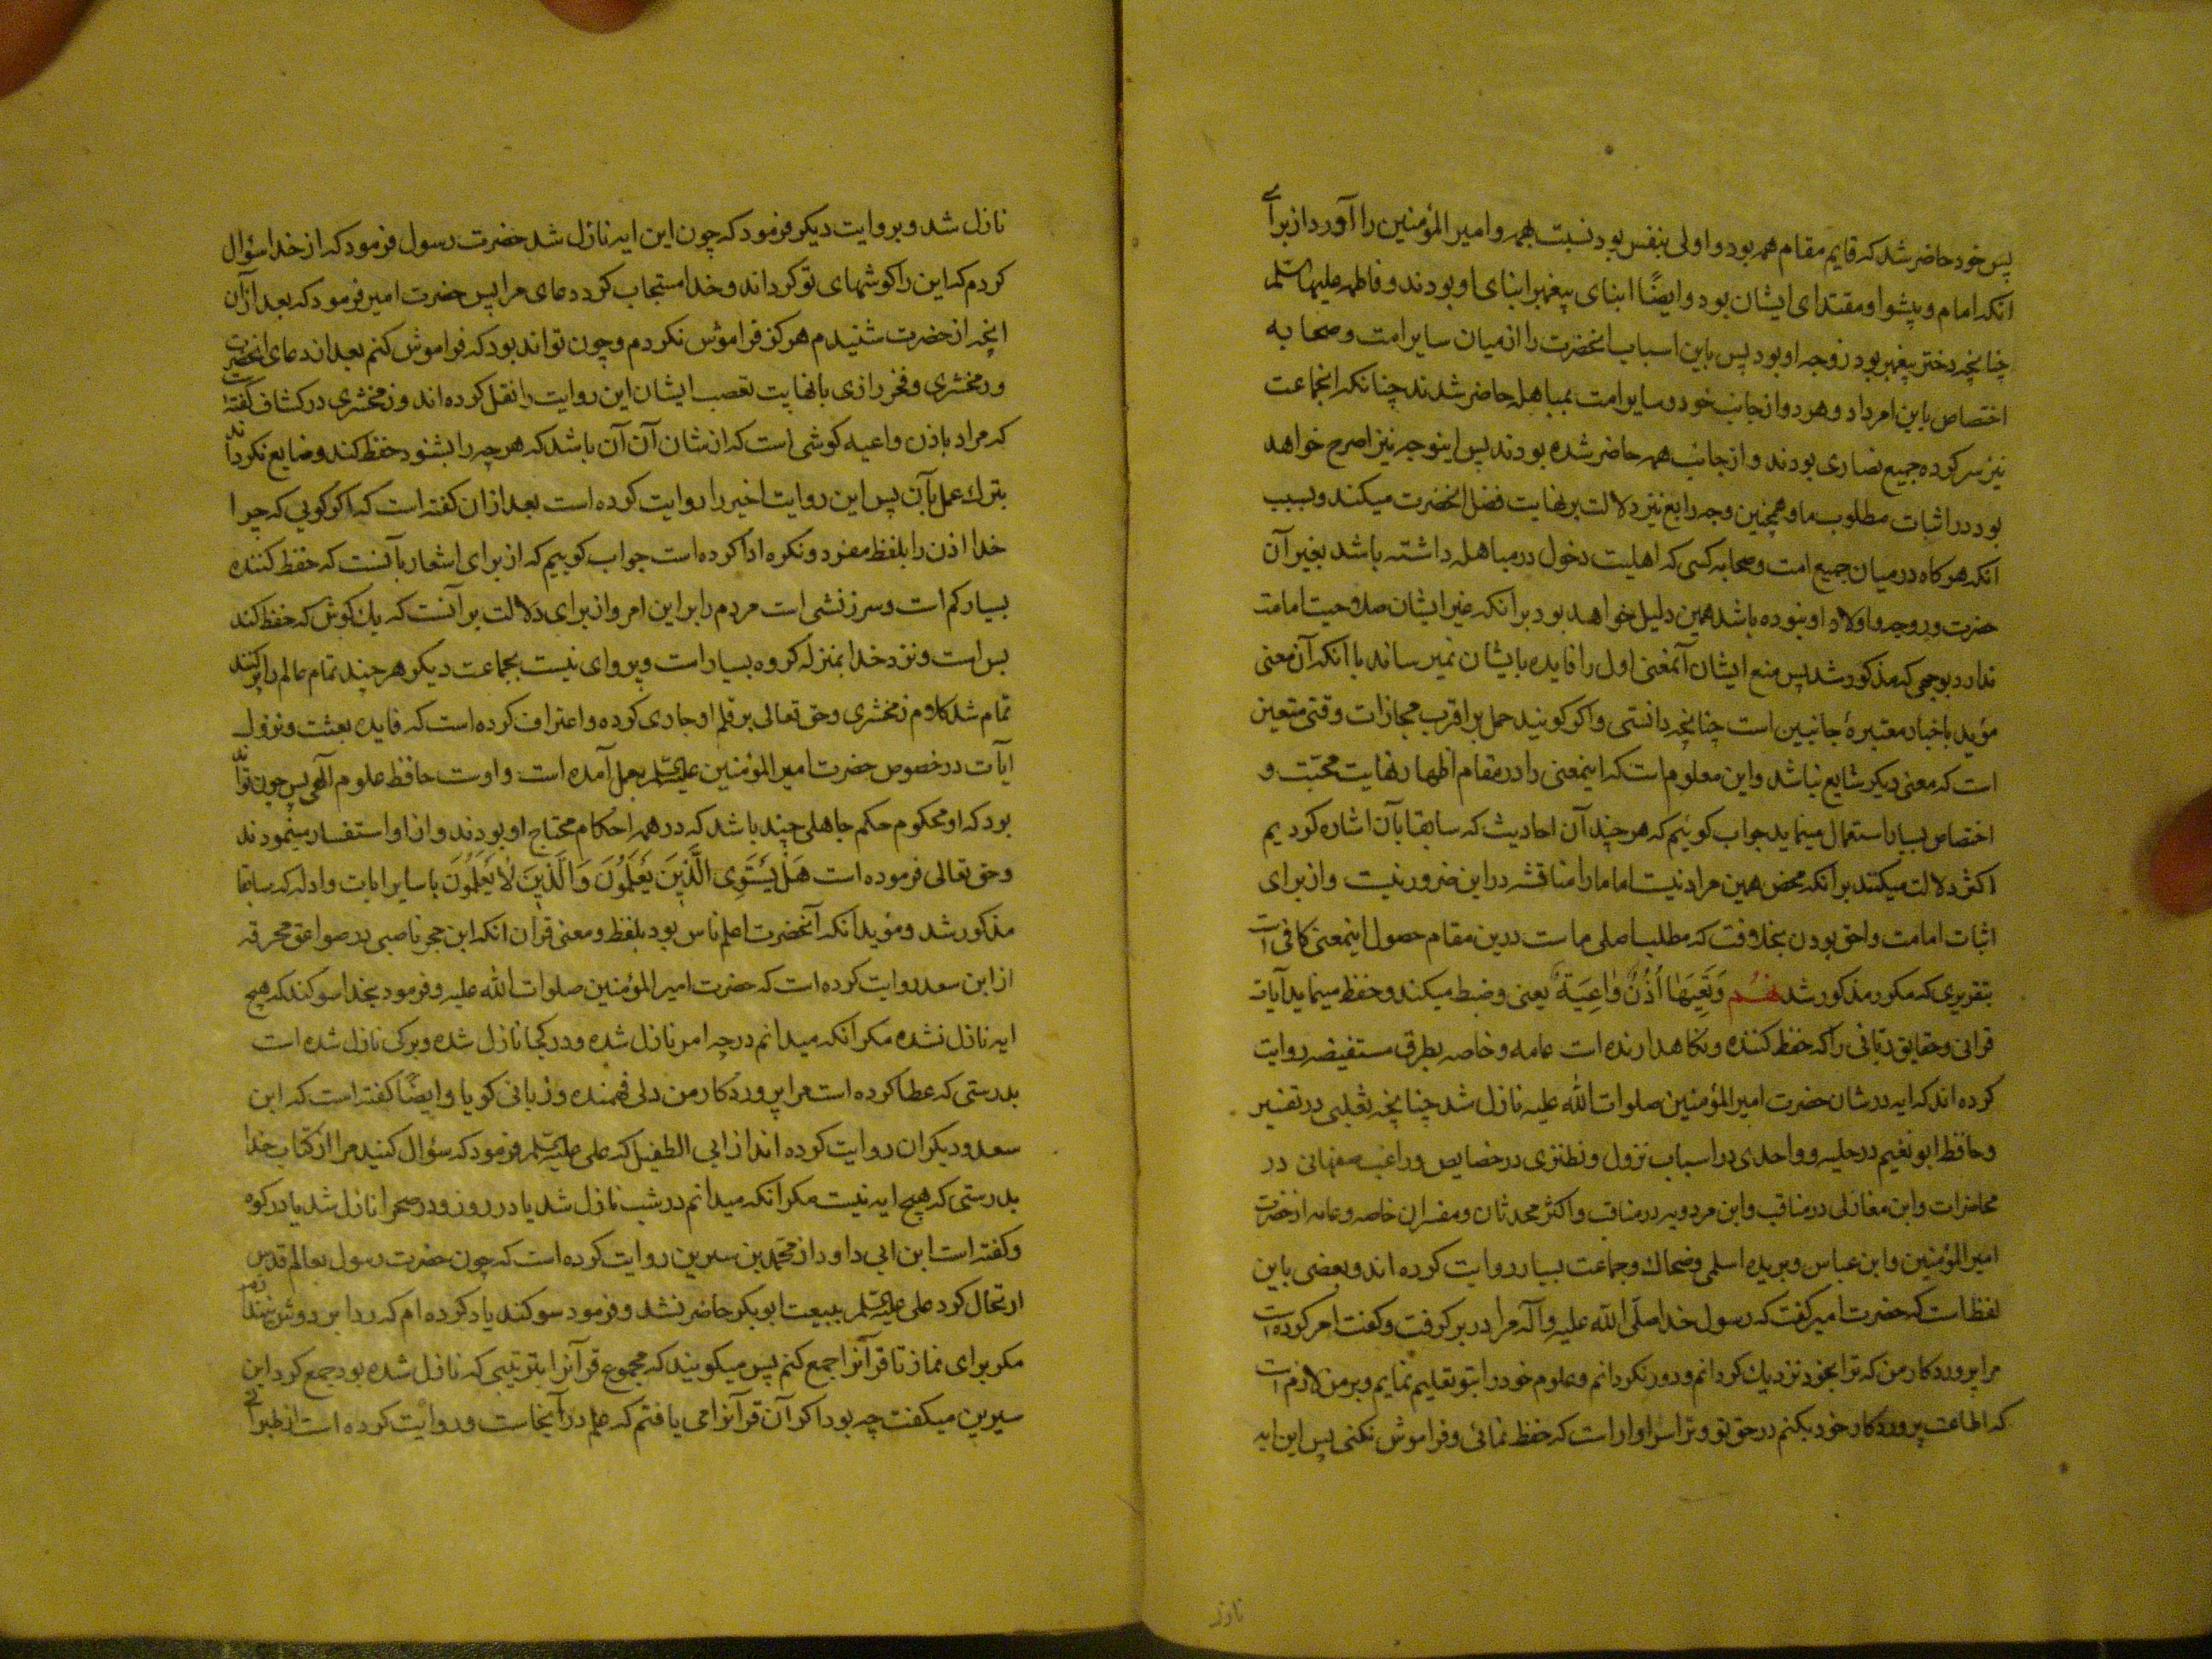 پس خود حاضر شد که قایم مقام همه بود و اولی بنفس بود نسبت بهمه و امیر المؤمنین را آورد از برای
انکه امام و پیشوا و مقتدای ایشان بود و ایضًا ابنای پیغمبر ابنای او بودند و فاطمه علیها السلم
چنانچه دختر پیغمبر بود زوجه او بود پس باین اسباب انحضرت را از میان سایر امت و صحابه
اختصاص باین امر داد و هر دو از جانب خود و سایر امت بمباهله حاضر شدند چنانکه انجماعت
نیز سر کرده جمیع نصاری بودند و از جانب همه حاضر شده بودند پس اینوجه نیز اصرح خواهد
بود در اثبات مطلوب ما و همچنین وجه رابع نیز دلالت بر نهایت فضل انحضرت میکند و بسبب
انکه هرکاه در میان جمیع امت و صحابه کسی که اهلیت دخول در مباهله داشته باشد بغیر آن
حضرت و زوجه و اولاد او نبوده باشد همین دلیل خواهد بود بر انکه غیر ایشان صلاحیت امامت
ندارد بوجهی که مذکور شد پس منع ایشان آنمعنی اول را فایده بایشان نمیرساند با انکه آن معنی
مؤید باخبار معتبرهٔ جانبین است چنانچه دانستی و اکر کویند حمل بر اقرب مجازات وقتی متعین
است که معنی دیکر شایع نباشد و این معلوم است که اینمعنی را در مقام اظهار نهایت محبّت و
اختصاص بسیار استعمال مینماید جواب کوئیم که هر چند آن احادیث که سابقا بآن اشاره کردیم
اکثر دلالت میکنند بر انکه محض همین مراد نیست اما ما را مناقشه در این ضرور نیست و از برای
اثبات امامت و احق بودن بخلافت که مطلب اصلی ماست درین مقام حصول اینمعنی کافی است
بتقریری که مکرر مذکور شد نهـم وَتَعِیَهٰا أُذُنٌ وٰاعِیَةٌ یعنی و ضبط میکند و حفظ مینماید آیات
قرانی و حقایق ربّانی را که حفظ کننده و نکاهدارنده است عامه و خاصه بطرق مستفیضه روایت
کرده اند که ایه در شان حضرت امیر المؤمنین صلوات الله علیه نازل شد چنانچه ثعلبی در تفسیر
و حافظ ابو نعیم در حلیه و واحدی در اسباب نزول و نطنزی در خصایص و راغب صفهانی در
محاضرات و ابن مغازلی در مناقب و ابن مردویه در مناقب و اکثر محدثان و مفسران خاصه و عامه از حضرت
امیر المؤمنین و ابن عباس و بریده اسلمی و ضحاک و جماعت بسیار روایت کرده اند و بعضی باین
لفظ است که حضرت امیر کفت که رسول خدا صلّی الله علیه و آله مرا در بر کرفت و کفت امر کرده است
مرا پروردکار من که ترا بخود نزدیک کردانم و دور نکردانم و علوم خود را بتو تعلیم نمایم و بر من لازم است
که اطاعت پروردکار خود بکنم در حق تو و ترا سزاوار است که حفظ نمائی و فراموش نکنی پس این ایه
نازل
نازل شد و بروایت دیکر فرمود که چون این ایه نازل شد حضرت رسول فرمود که از خدا سؤال
کردم که این را کوشهای تو کرداند و خدا مستجاب کرد دعای مرا پس حضرت امیر فرمود که بعد از آن
انچه از حضرت شنیدم هرکز فراموش نکردم و چون تواند بود که فراموش کنم بعد از دعای انحضرت
و زمخشری و فخر رازی با نهایت تعصب ایشان این روایت را نقل کرده اند و زمخشری در کشاف کفته است
که مراد باذن واعیه کوشی است که از شان آن آن باشد که هرچه را بشنود حفظ کند و ضایع نکرداند
بترک عمل بآن پس این روایت اخیر را روایت کرده است بعد از ان کفته است که اکر کویی که چرا
خدا اذن را بلفظ مفرد و نکره ادا کرده است جواب کوییم که از برای اشعار بآنست که حفظ کننده
بسیار کم است و سرزنشی است مردم را بر این امر و از برای دلالت بر آنست که یک کوش که حفظ کند
بس است و نزد خدا بمنزله کروه بسیار است و پروای نیست بجماعت دیکر هر چند تمام عالم را پر کنند
تمام شد کلام زمخشری و حق تعالی بر قلم او جاری کرده و اعتراف کرده است که فایده بعثت و نزول
ایات در خصوص حضرت امیر المؤمنین علیه السلم بعمل آمده است و اوست حافظ علوم آلهی پس چون تواند
بود که او محکوم حکم جاهلی چند باشد که در همه احکام محتاج او بودند و از او استفسار مینمودند
و حق تعالی فرموده است هَلْ یَسْتَوِی الَّذینَ یَعْلَمُونَ وَالَّذینَ لاٰ یَعْلَمُونَ با سایر ایات و ادله که سابقا
مذکور شد و مؤید انکه آنحضرت اعلم ناس بود بلفظ و معنی قران انکه ابن حجر ناصبی در صواعق محرقه
از ابن سعد روایت کرده است که حضرت امیر المؤمنین صلوات الله علیه و فرمود بخدا سوکند که هیچ
ایه نازل نشده مکر انکه میدانم در چه امر نازل شده و در کجا نازل شده و بر کی نازل شده است
بدرستی که عطا کرده است مرا پروردکار من دلی فهمنده و زبانی کویا و ایضًا کفته است که ابن
سعد و دیکران روایت کرده اند از ابی الطفیل که علی علیه السلم فرمود که سؤال کنید مرا از کتاب خدا
بدرستی که هیچ ایه نیست مکر انکه میدانم در شب نازل شد یا در روز و در صحرا نازل شد یا در کوه
و کفته است ابن ابی داود از محمّد بن سیرین روایت کرده است که چون حضرت رسول بعالم قدس
ارتحال کرد علی علیه السلم ببیعت ابوبکر حاضر نشد و فرمود سوکند یاد کرده ام که ردا بر دوش نیندازم
مکر برای نماز تا قرآنرا جمع کنم پس میکویند که مجموع قرآنرا بترتیبی که نازل شده بود جمع کرد ابن
سیرین میکفت چه بود اکر آن قرآنرا می یافتم که علم در آنجاست و روایت کرده است از طبرانی